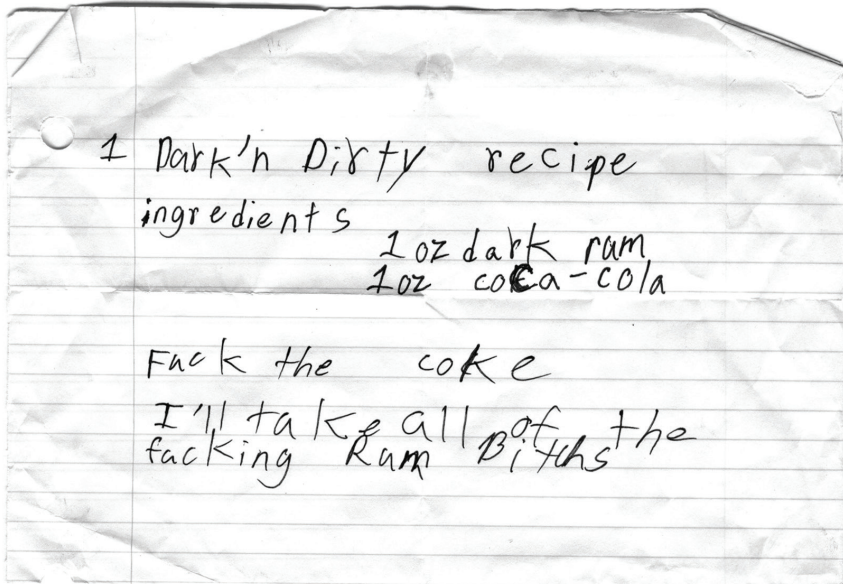 1 Dark'n Dirty recipe
ingredients
1 oz dark rum
1oz coca-cola
Fuck the coke
I'll take all of the
fucking Rum Bitchs